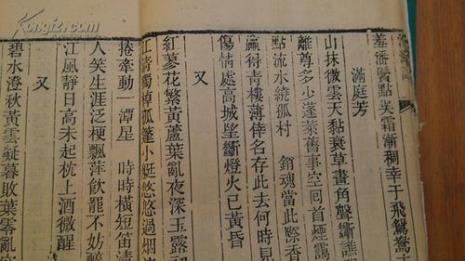 羞潘鬢點吳霜漸稠幸于飛鴛鴦
滿庭芳
山抹微雲天黏衰草畫角聲斷譙
離尊多少蓬萊舊事空回首煙靄
點流水繞孤村 銷魂當此際香
贏得青樓薄倖名存此去何時見
傷情處高城望斷燈火已黃昏
又
紅蓼花繁黃蘆葉亂夜深玉露初
江清獨棹孤篷小艇悠悠過煙
捲牽動一潭星 時時橫短笛清
人笑生涯泛梗飄萍飲罷不妨醉
江風靜日高未起枕上酒微醒
又
碧水澄秋黃雲凝暮敗葉零亂
kongfz.com